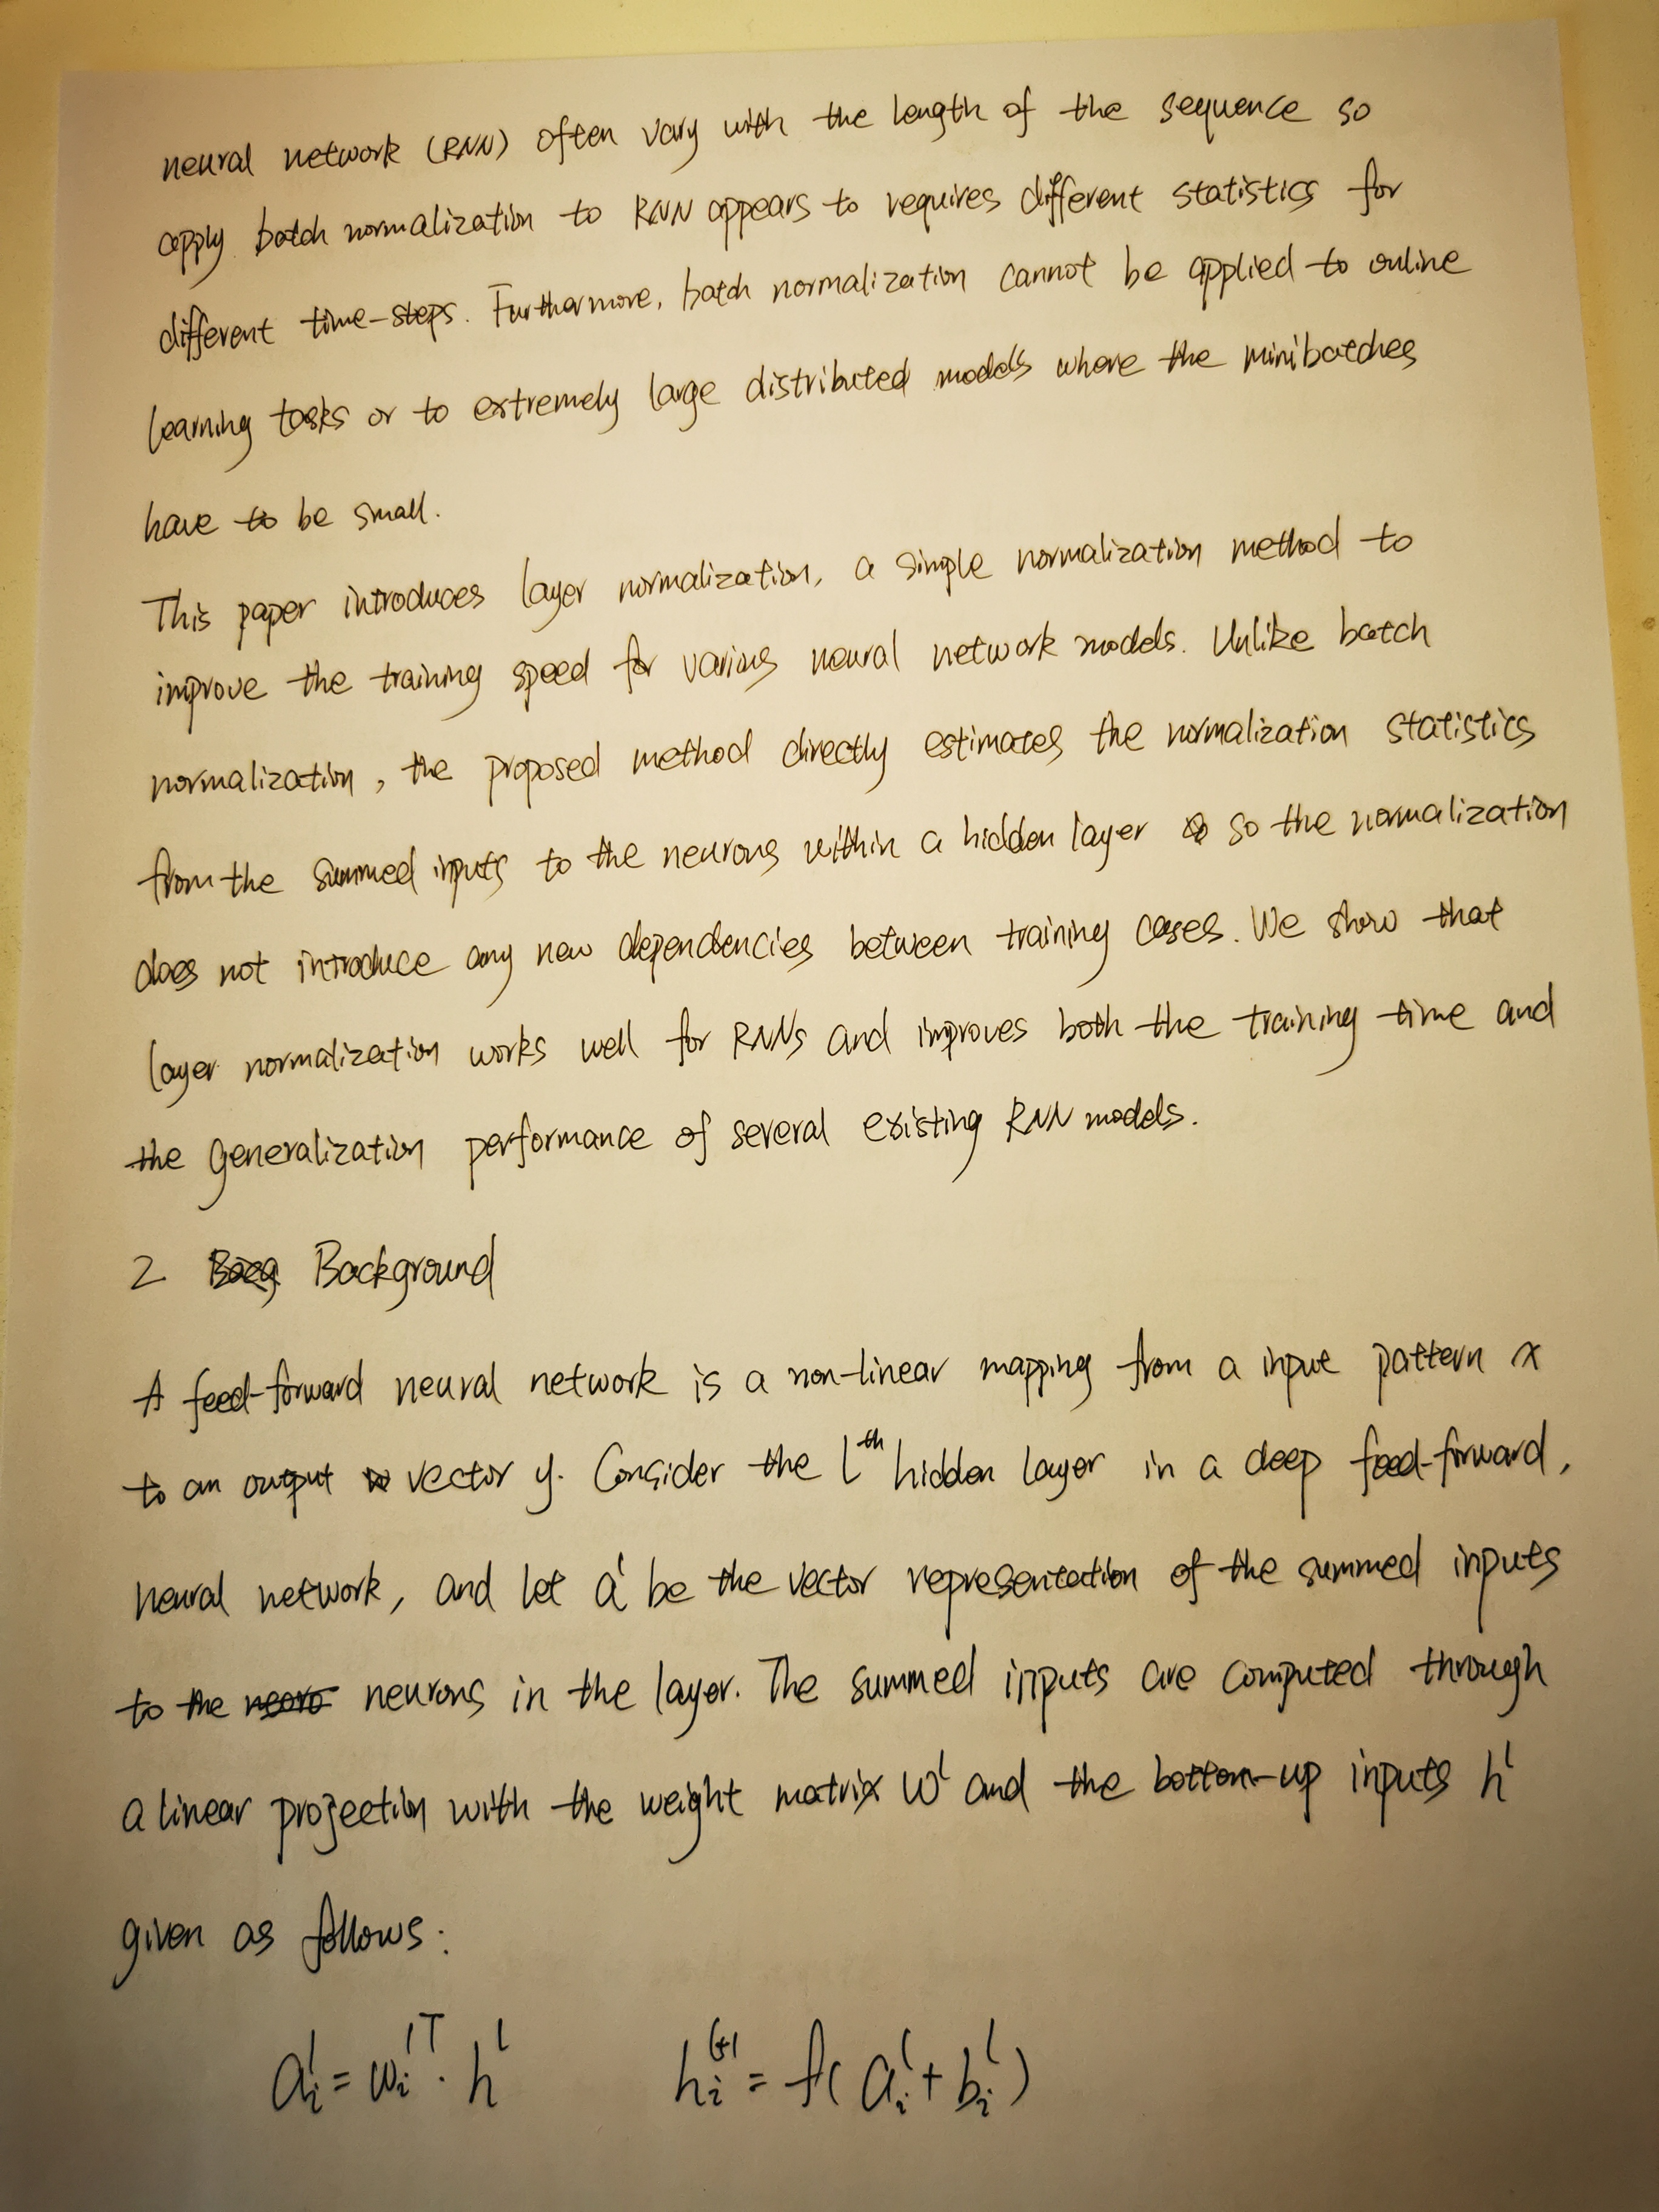 neural network (RNN) often vary with the length of the sequence so
apply batch normalization to RNN appears to requires different statistics for
different time-steps. Furthermore, batch normalization cannot be applied to online
learning tasks or to extremely large distributed models where the minibatches
have to be small.
This paper introduces layer normalization, a simple normalization method to
improve the training speed for various neural network models. Unlike batch
normalization, the proposed method directly estimates the normalization statistics
from the summed inputs to the neurons within a hidden layer so the normalization
does not introduce any new dependencies between training cases. We show that
layer normalization works well for RNNs and improves both the training time and
the generalization performance of several existing RNN models.
2 Background
A feed-forward neural network is a non-linear mapping from a input pattern x
to an output vector y. Consider the lᵗʰ hidden layer in a deep feed-forward,
neural network, and let aˡ be the vector representation of the summed inputs
to the neurons in the layer. The summed inputs are computed through
a linear projection with the weight matrix Wˡ and the bottom-up inputs hˡ
given as follows:
a_i^l = w_i^{lT} · h^l    h_i^{l+1} = f(a_i^l + b_i^l)